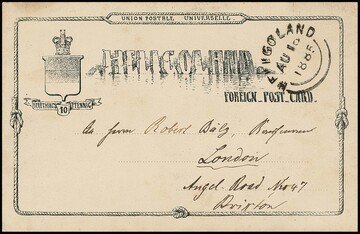 UNION POSTALE UNIVERSELLE.
HELIGOLAND
HELIGOLAND
AU 1
1885
FÜNFTHING 10 PFENNIG
FOREIGN POST CARD.
An Herrn Robert Bälz,
London
Angel-Road No 47
Brixton